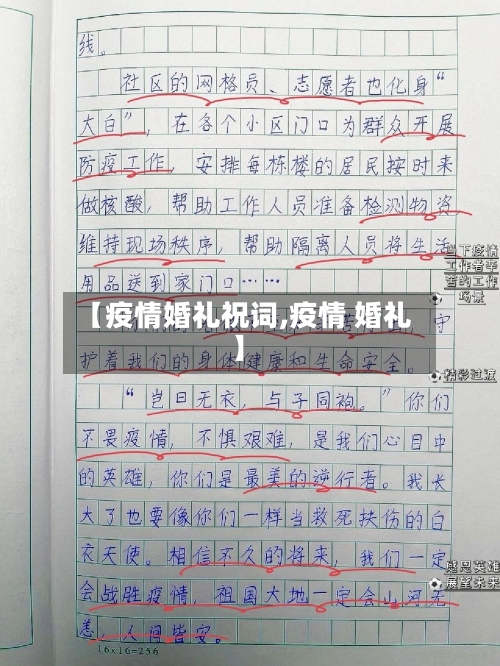 线。
社区的网格员、志愿者也化身“
大白”，在各个小区门口为群众开展
防疫工作，安排每栋楼的居民按时来
做核酸，帮助工作人员准备检测物资
维持现场秩序，帮助隔离人员将生活
用品送到家门口……
下疫情
工作者辛
苦的工作
场景
【疫情婚礼祝词,疫情 婚礼
】
守
护着我们的身体健康和生命安全。
精彩过渡
“岂曰无衣，与子同袍。”你们
不畏疫情，不惧艰难，是我们心目中
的英雄，你们是最美的逆行者。我长
大了也要像你们一样当救死扶伤的白
衣天使。相信不久的将来，我们一定
会战胜疫情，祖国大地一定会山河无
恙，人间皆安。
感恩英雄
展望未来
16×16=256